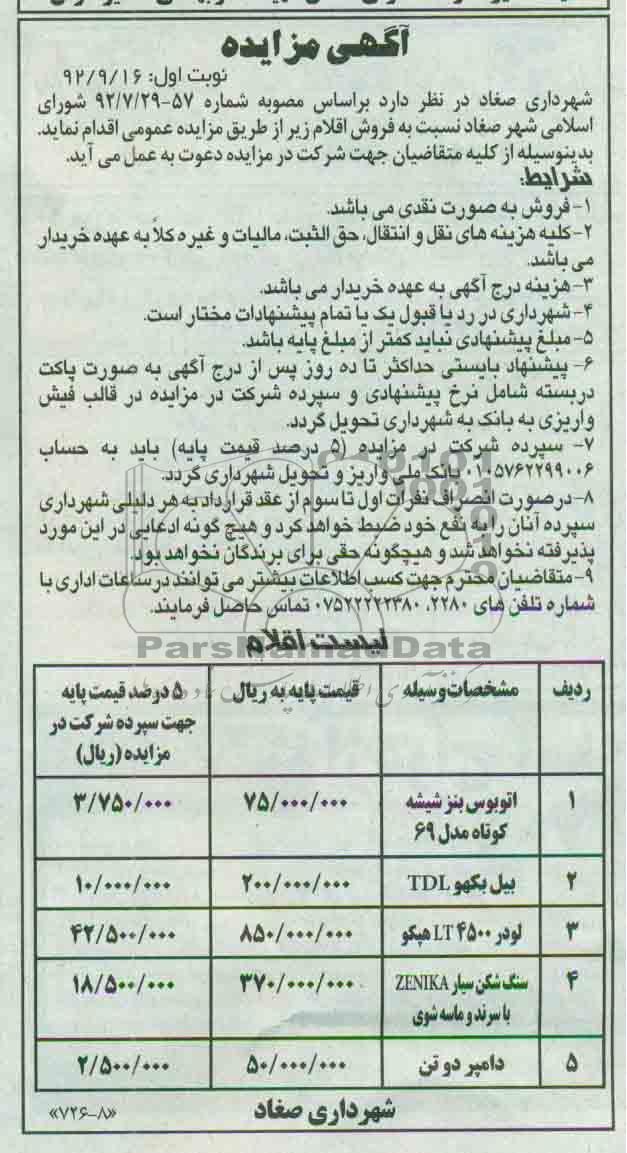 آگهی مزایده
نوبت اول: ۹۲/۹/۱۶
شهرداری صغاد در نظر دارد براساس مصوبه شماره ۵۷-۹۲/۷/۲۹ شورای
اسلامی شهر صغاد نسبت به فروش اقلام زیر از طریق مزایده عمومی اقدام نماید.
بدینوسیله از کلیه متقاضیان جهت شرکت در مزایده دعوت به عمل می آید.
شرایط:
۱-فروش به صورت نقدی می باشد.
۲-کلیه هزینه های نقل و انتقال، حق الثبت، مالیات و غیره کلاً به عهده خریدار
می باشد.
۳-هزینه درج آگهی به عهده خریدار می باشد.
۴-شهرداری در رد یا قبول یک یا تمام پیشنهادات مختار است.
۵-مبلغ پیشنهادی نباید کمتر از مبلغ پایه باشد.
۶- پیشنهاد بایستی حداکثر تا ده روز پس از درج آگهی به صورت پاکت
دربسته شامل نرخ پیشنهادی و سپرده شرکت در مزایده در قالب فیش
واریزی به بانک به شهرداری تحویل گردد.
۷- سپرده شرکت در مزایده (۵ درصد قیمت پایه) باید به حساب
۰۱۰۵۷۶۲۲۹۹۰۰۶ بانک ملی واریز و تحویل شهرداری گردد.
۸-درصورت انصراف نفرات اول تا سوم از عقد قرارداد به هر دلیلی شهرداری
سپرده آنان را به نفع خود ضبط خواهد کرد و هیچ گونه ادعایی در این مورد
پذیرفته نخواهد شد و هیچگونه حقی برای برندگان نخواهد بود.
۹-متقاضیان محترم جهت کسب اطلاعات بیشتر می توانند در ساعات اداری با
شماره تلفن های ۲۲۸۰، ۰۷۵۲۲۲۲۲۳۸۰ تماس حاصل فرمایند.
لیست اقلام
ParsNamadData
ردیف مشخصات وسیله قیمت پایه به ریال ۵ درصد قیمت پایه
جهت سپرده شرکت در
مزایده (ریال)
۱ اتوبوس بنز شیشه ۷۵/۰۰۰/۰۰۰ ۳/۷۵۰/۰۰۰
کوتاه مدل ۶۹
۲ بیل بکهو TDL ۲۰۰/۰۰۰/۰۰۰ ۱۰/۰۰۰/۰۰۰
۳ لودر LT ۴۵۰۰ هپکو ۸۵۰/۰۰۰/۰۰۰ ۴۲/۵۰۰/۰۰۰
۴ سنگ شکن سیار ZENIKA ۳۷۰/۰۰۰/۰۰۰ ۱۸/۵۰۰/۰۰۰
با سرند و ماسه شوی
۵ دامپر دو تن ۵۰/۰۰۰/۰۰۰ ۲/۵۰۰/۰۰۰
شهرداری صغاد
«۷۲۶-۸»